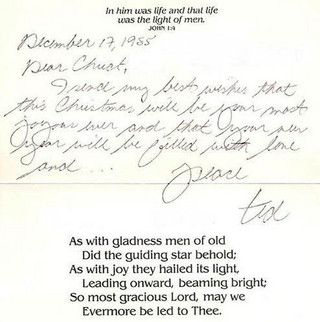 In him was life and that life
was the light of men.
JOHN 1:4
December 17, 1985
Dear Chuck,
I send my best wishes that
this Christmas will be your most
joyous ever and that your new
year will be filled with love
and ... peace
Ted
As with gladness men of old
Did the guiding star behold;
As with joy they hailed its light,
Leading onward, beaming bright;
So most gracious Lord, may we
Evermore be led to Thee.